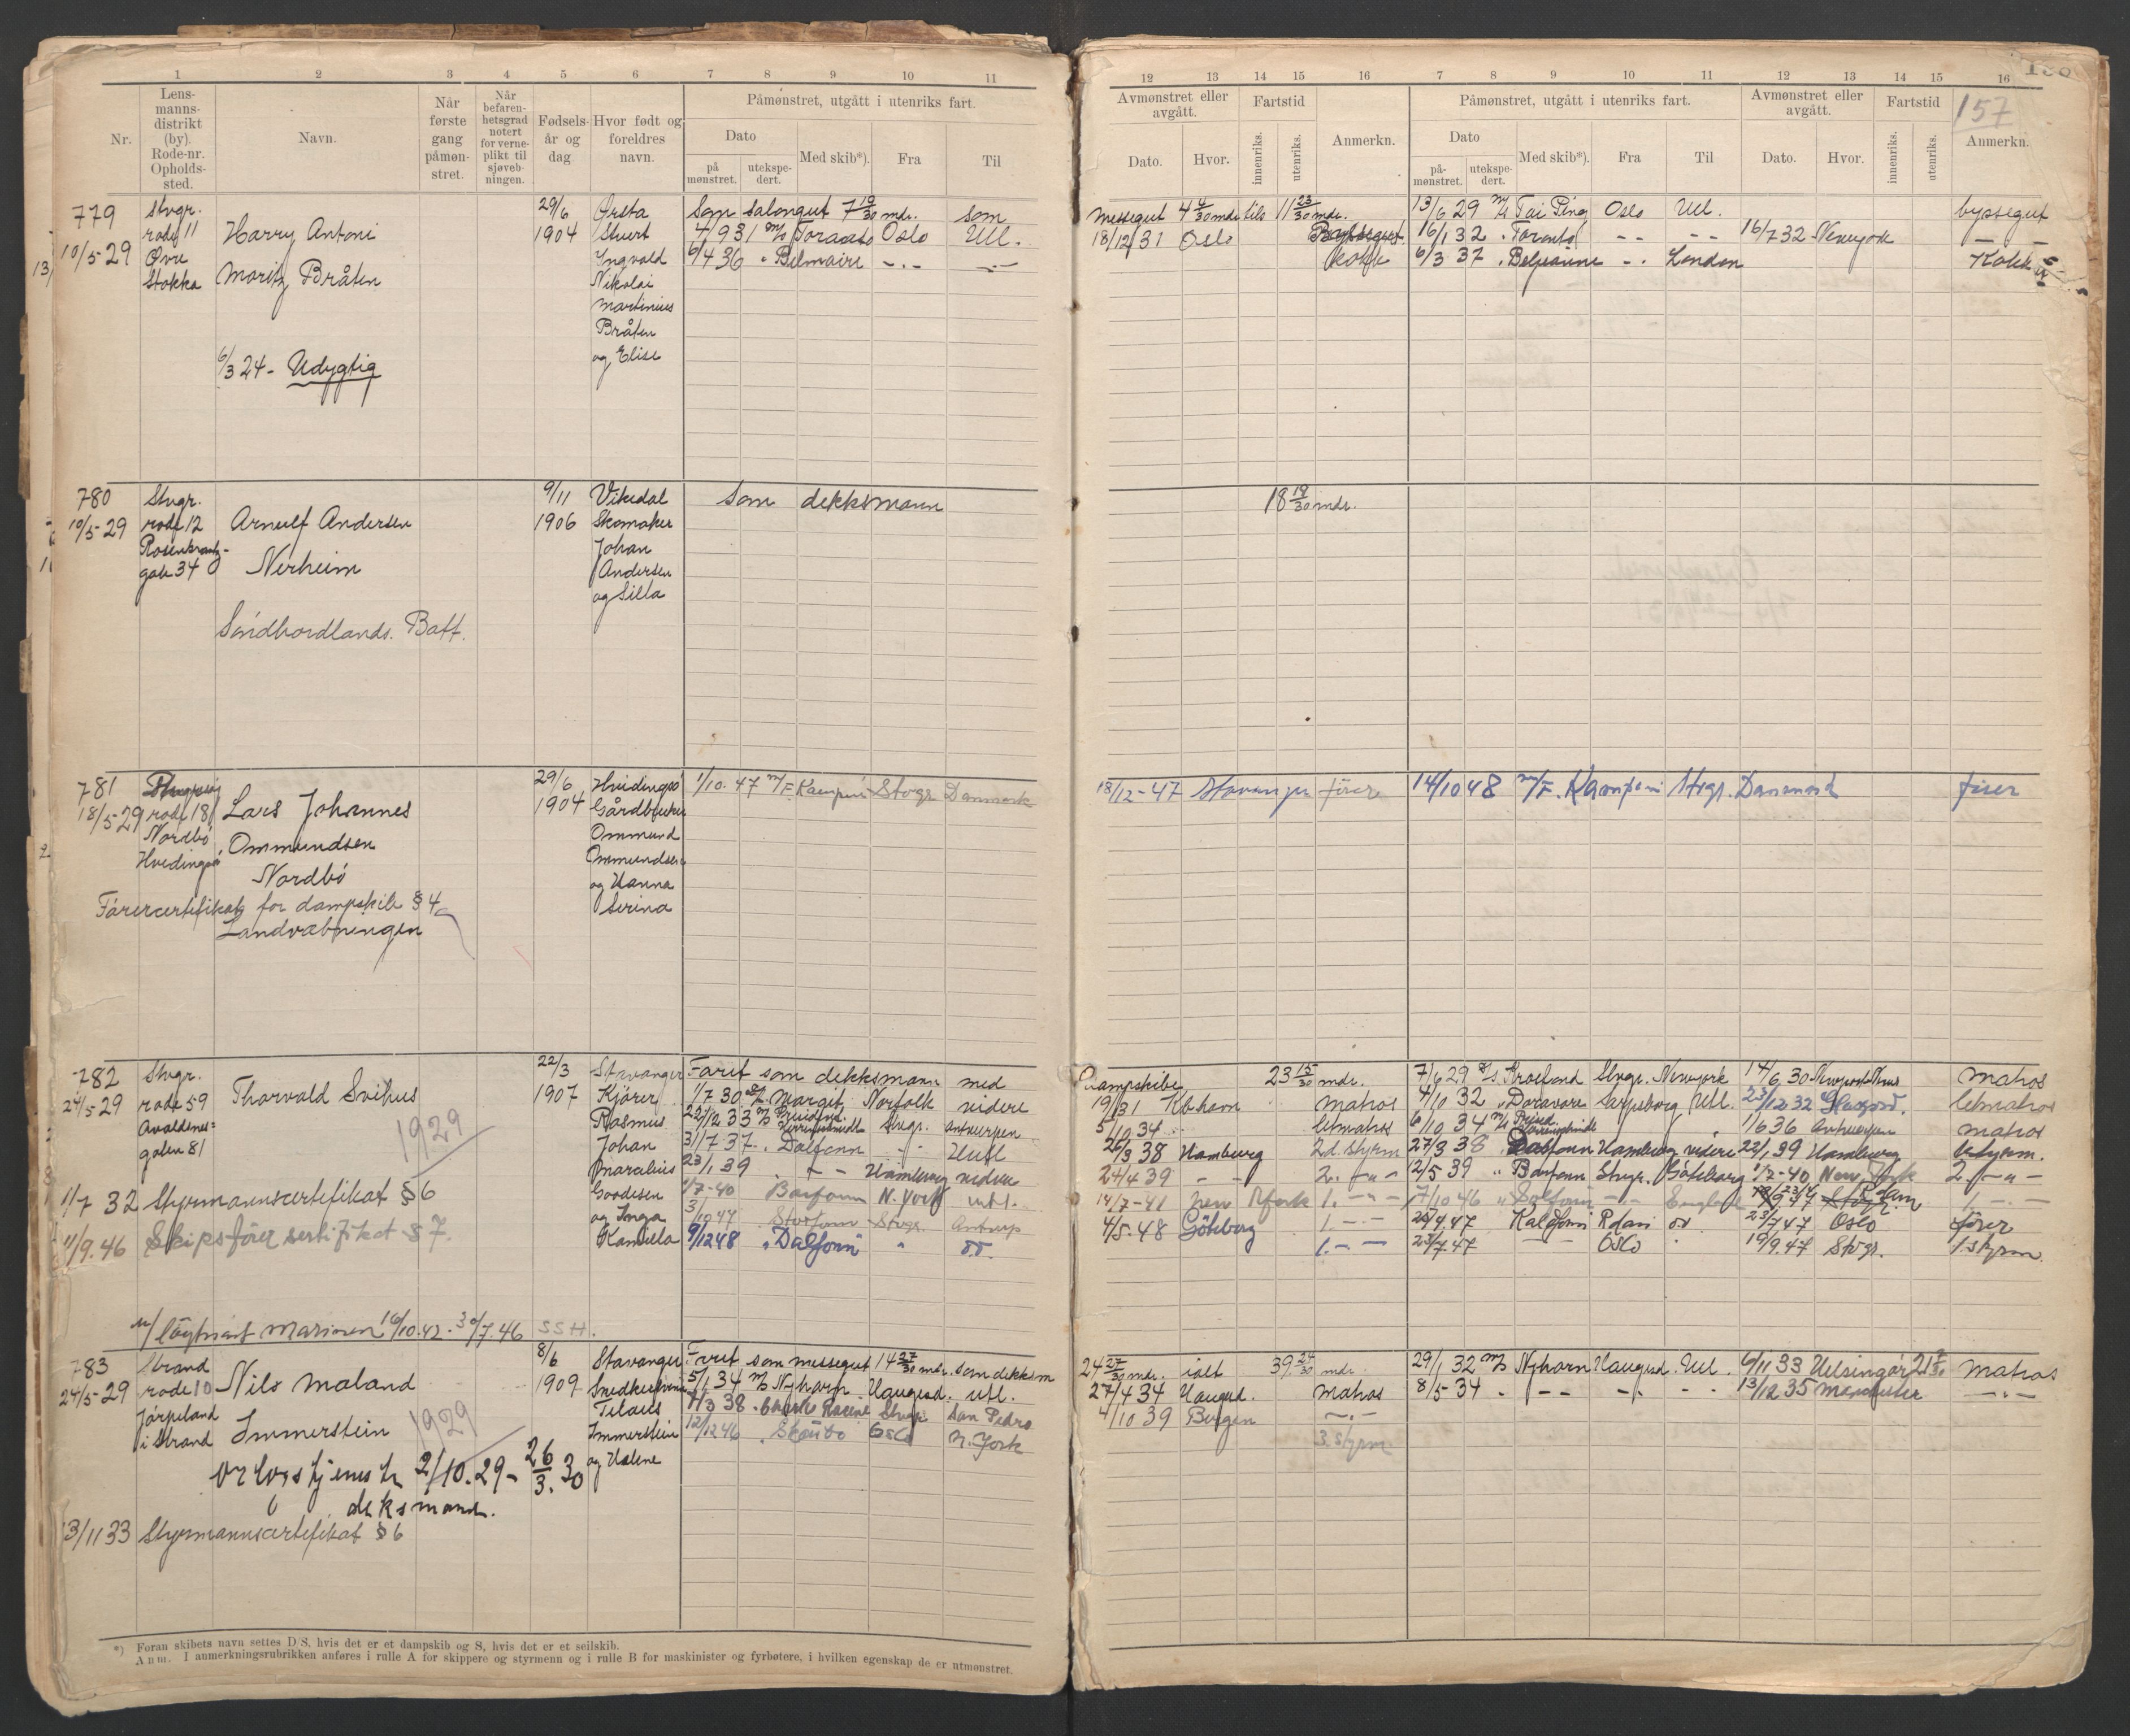 1 2 3 4 5 6 7 8 9 10 11
Nr.
Lens-
manns-
distrikt
(by).
Rode-nr.
Opholds-
sted.
Navn.
Når
første
gang
påmøn-
stret.
Når
befaren-
hetsgrad
notert
for verne-
plikt til
sjøveb-
ningen.
Fødsels-
år og
dag
Hvor født og
foreldres
navn.
Påmønstret, utgått i utenriks fart.
Dato
på
mønstret.
utekspe-
dert.
Med skib*).
Fra
Til
12 13 14 15 16 7 8 9 10 11 12 13 14 15 16
157
Avmønstret eller
avgått.
Dato.
Hvor.
Fartstid
innenriks.
utenriks.
Anmerkn.
Påmønstret, utgått i utenriks fart.
Dato
på-
mønstret.
utekspe-
dert.
Med skib*).
Fra
Til
Avmønstret eller
avgått.
Dato.
Hvor.
Fartstid
innenriks.
utenriks.
Anmerkn.
779
10/5-29
Stvgr.
rode 11
Øvre
Stokka
Harry Antoni
Moritz Bråten
6/3 24 - Udygtig
29/6
1904
Ørsta
Stuert
Ingvald
Nikolai
Martinius
Bråten
og Elise
Som salongut 7 19/30 mdr. som
4/9 31 m/s Toronto Oslo Utl.
6/4 36 " Belmoire -.- -.-
messegut 4 4/30 mdr tils 11 23/30 mdr.
18/12 31 Oslo Byssegut
Kokk
13/6 29 m/s Tai Ping Oslo Utl. byssegut
16/1 32 " Toronto - - - - 16/7 32 Newyork - -
6/3 37 " Belpamme -. London Kokk
780
10/5-29
Stvgr.
rode 12
Rosenkrantz-
gate 34
Arnulf Andersen
Nerheim
Søndhordlands. Batt.
9/11
1906
Vikedal
Skomaker
Johan
Andersen
og Silla
Som dekksmann
18 19/30 mdr.
781
18/5-29
rode 18
Nordbø
Hvidingsø
Lars Johannes
Ommundsen
Nordbø
Førercertefikat for dampskib § 4
Landvæbningen
29/6
1904
Hvidingsø
Gårdbruker
Ommund
Ommundsen
og Hanna
Serina
1/10.47 m/F. Kampen Stvgr. Danmark
18/12-47 Stavanger fører
14/10 48 m/F. Kampen Stvgr. Danmark fører
782
24/5-29
Stvgr.
rode 59
Avaldsnes-
gaten 81
Thorvald Svihus
1929
1/7 32 Styrmannscertefikat § 6
11/9.46 Skipsfører sertifikat § 7.
m/ løytnant marinen 16/10.42 - 30/7.46 SSH.
22/3
1907
Stavanger
Kjører
Rasmus
Johan
Marcelius
Goodesen
og Inga
Kamilla
Faret som dekksmann med
1/7 30 Margit Norfolk videre
22/12 33 Stvgr. Antwerpen
31/7 37 " Dalfonn - - Utl.
23/1 39 " - - Hamburg videre
1/7-40 Borfonn N. York utl.
3/10 47 Storfonn Stvgr. Antwerp
9/12 48 " Dalfonn " oo.
Dampskibe 23 15/30 mdr.
19/1 31 Kbhavn matros
5/10 34 letmatros
26/3 38 Hamburg 2d. styrm
24/4 39 - - 2. -"-
14/7-41 New York 1. -"-
4/5-48 Göteborg 1. - -
1. - -
7/6 29 Stvgr. Newyork 14/6 30 matros
4/10 32 " Doravore Sarpsborg Utl. 23/12 32 letmatros
6/10 34 m/s 1/6 36 Antwerpen matros
27/3 38 Dalfonn Hamburg videre 22/1 39 Hamburg styrm.
12/5 39 " Borfonn Stvgr. Göteborg 1/7-40 New York 2. -"-
7/10 46 " Dalfonn - - England 1. - -
26/4.47 Kaldfonn Rdam oo 23/7 47 Oslo fører
23/7.47 Oslo 19/9.47 Stvgr. 1. styrm
783
24/5-29
Strand
rode 10
Jørpeland
i Strand
Nils Maland
Immerstein
1929
orlogstjeneste 2/10.29 - 26/3.30
deksmand.
13/11 33 Styrmannscertefikat § 6
8/6
1909
Stavanger
Snedkersvend
Tilaus
Immerstein
og Helene
Faret som messegut 14 27/30 mdr. som dekksm
5/1 34 m/s Nyhorn Haugesd. utl.
11/3 38 Stvgr. San Pedro
12/12 46 " Skaubo Oslo N. York
24 27/30 mdr. ialt 39 24/30 mdr.
27/4 34 Haugsd. matros
4/10 39 Bergen -.-
3. styrm
29/1 32 m/s Nyhorn Haugesd. Utl. 6/11 33 Helsingør 21 7/30 matros
8/5 34 " - - -.- - - 13/12 35 Manchester -.-
*) Foran skibets navn settes D/S, hvis det er et dampskib og S, hvis det er et seilskib.
Anm. I anmerkningsrubrikken anføres i rulle A for skippere og styrmenn og i rulle B for maskinister og fyrbøtere, i hvilken egenskap de er utmønstret.